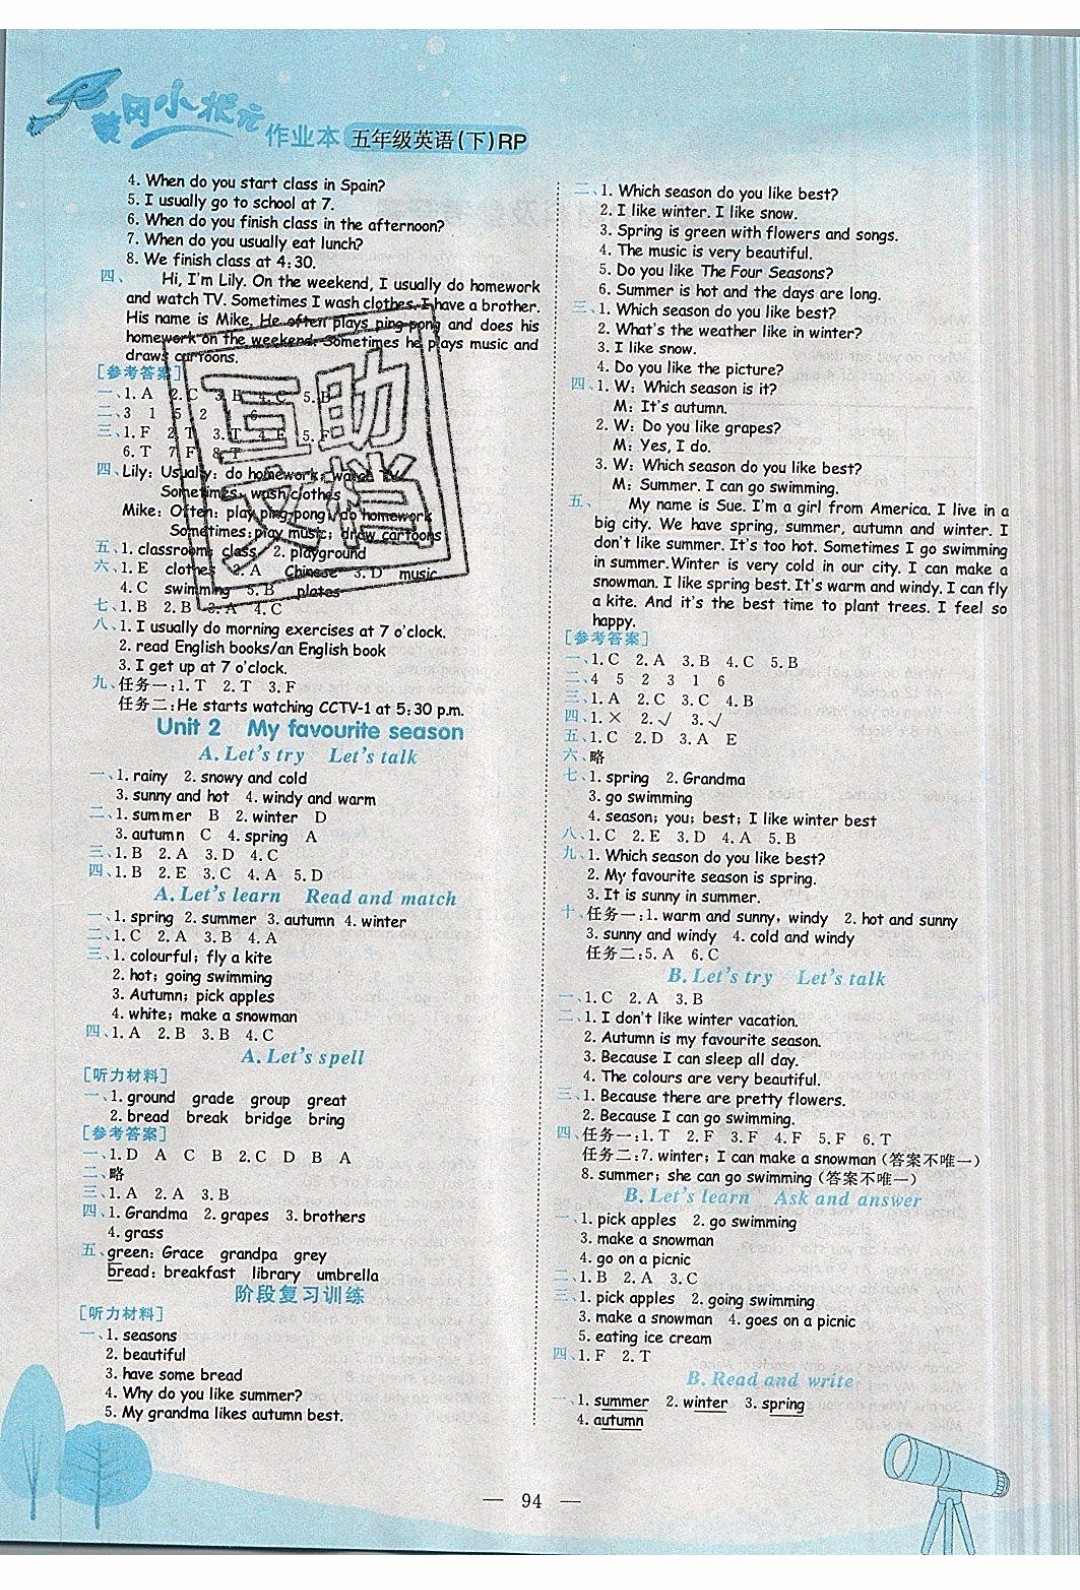 黄冈小状元
作业本 五年级英语(下)RP
4. When do you start class in Spain?
5. I usually go to school at 7.
6. When do you finish class in the afternoon?
7. When do you usually eat lunch?
8. We finish class at 4:30.
四、 Hi, I'm Lily. On the weekend, I usually do homework
and watch TV. Sometimes I wash clothes. I have a brother.
His name is Mike. He often plays ping-pong and does his
homework on the weekend. Sometimes he plays music and
draws cartoons.
[参考答案]
一、1. A 2. C 3. B 4. C 5. B
二、3 1 5 2 6
三、1. F 2. T 3. T 4. F 5. F
6. T 7. F 8. T
四、Lily: Usually: do homework; watch TV
Sometimes: wash clothes
Mike: Often: play ping-pong; do homework
Sometimes: play music; draw cartoons
五、1. classroom; class 2. playground
六、1. E clothes 2. A Chinese 3. D music
4. C swimming 5. B plates
七、1. B 2. B 3. A 4. C
八、1. I usually do morning exercises at 7 o'clock.
2. read English books/an English book
3. I get up at 7 o'clock.
九、任务一:1. T 2. T 3. F
任务二:He starts watching CCTV-1 at 5:30 p.m.
Unit 2 My favourite season
A. Let's try Let's talk
一、1. rainy 2. snowy and cold
3. sunny and hot 4. windy and warm
二、1. summer B 2. winter D
3. autumn C 4. spring A
三、1. B 2. A 3. D 4. C
四、1. B 2. E 3. C 4. A 5. D
A. Let's learn Read and match
一、1. spring 2. summer 3. autumn 4. winter
二、1. C 2. A 3. B 4. A
三、1. colourful; fly a kite
2. hot; going swimming
3. Autumn; pick apples
4. white; make a snowman
四、1. A 2. B 3. B 4. C
A. Let's spell
[听力材料]
一、1. ground grade group great
2. bread break bridge bring
[参考答案]
一、1. D A C B 2. C D B A
二、略
三、1. A 2. A 3. B
四、1. Grandma 2. grapes 3. brothers
4. grass
五、green: Grace grandpa grey
bread: breakfast library umbrella
阶段复习训练
[听力材料]
一、1. seasons
2. beautiful
3. have some bread
4. Why do you like summer?
5. My grandma likes autumn best.
二、1. Which season do you like best?
2. I like winter. I like snow.
3. Spring is green with flowers and songs.
4. The music is very beautiful.
5. Do you like The Four Seasons?
6. Summer is hot and the days are long.
三、1. Which season do you like best?
2. What's the weather like in winter?
3. I like snow.
4. Do you like the picture?
四、1. W: Which season is it?
M: It's autumn.
2. W: Do you like grapes?
M: Yes, I do.
3. W: Which season do you like best?
M: Summer. I can go swimming.
五、 My name is Sue. I'm a girl from America. I live in a
big city. We have spring, summer, autumn and winter. I
don't like summer. It's too hot. Sometimes I go swimming
in summer. Winter is very cold in our city. I can make a
snowman. I like spring best. It's warm and windy. I can fly
a kite. And it's the best time to plant trees. I feel so
happy.
[参考答案]
一、1. C 2. A 3. B 4. C 5. B
二、4 5 2 3 1 6
三、1. A 2. C 3. C 4. B
四、1. × 2. √ 3. √
五、1. C 2. D 3. A E
六、略
七、1. spring 2. Grandma
3. go swimming
4. season; you; best; I like winter best
八、1. C 2. E 3. D 4. A 5. B
九、1. Which season do you like best?
2. My favourite season is spring.
3. It is sunny in summer.
十、任务一:1. warm and sunny, windy 2. hot and sunny
3. sunny and windy 4. cold and windy
任务二:5. A 6. C
B. Let's try Let's talk
一、1. C 2. A 3. B
二、1. I don't like winter vacation.
2. Autumn is my favourite season.
3. Because I can sleep all day.
4. The colours are very beautiful.
三、1. Because there are pretty flowers.
2. Because I can go swimming.
四、任务一:1. T 2. F 3. F 4. F 5. F 6. T
任务二:7. winter; I can make a snowman(答案不唯一)
8. summer; she can go swimming(答案不唯一)
B. Let's learn Ask and answer
一、1. pick apples 2. go swimming
3. make a snowman
4. go on a picnic
二、1. B 2. A 3. C
三、1. pick apples 2. going swimming
3. make a snowman 4. goes on a picnic
5. eating ice cream
四、1. F 2. T
B. Read and write
一、1. summer 2. winter 3. spring
4. autumn
— 94 —
互助
文档